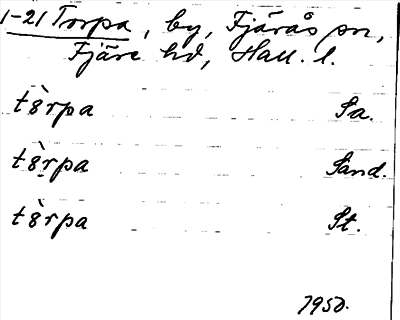 1-21 Torpa, by, Fjärås sn,
Fjäre hd, Hall. l.
t8̀rpa Sa.
t8̀rpa Sand.
t8̀rpa St.
1950.